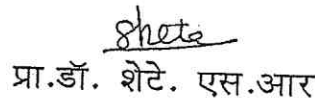 Shete
प्रा.डॉ. शेटे. एस.आर